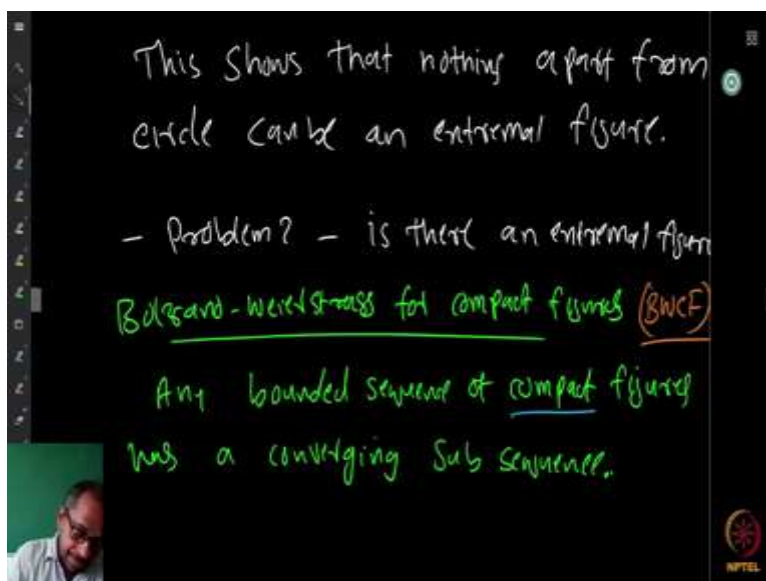 This shows that nothing apart from
circle can be an extremal figure.
- Problem? - is there an extremal figur
Bolzano-Weierstrass for compact figures (BWCF)
Any bounded sequence of compact figures
has a converging Sub sequence.
NPTEL